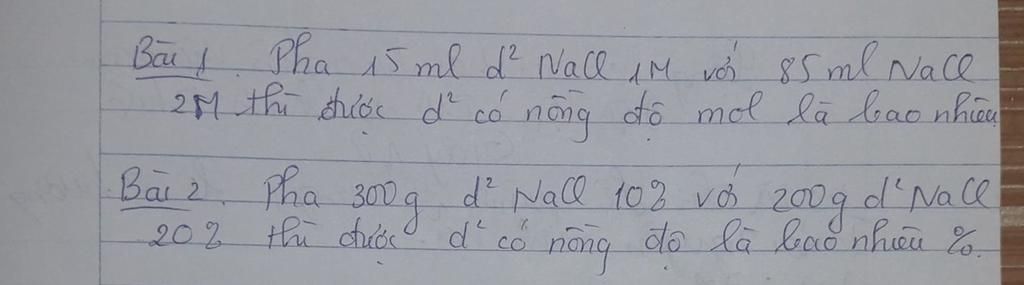 Bài 1. Pha 15 ml d² NaCl 1M với 85 ml NaCl
2M thì được d² có nồng độ mol là bao nhiêu
Bài 2. Pha 300g d² NaCl 10% với 200g d² NaCl
20% thì được d² có nồng độ là bao nhiêu %.